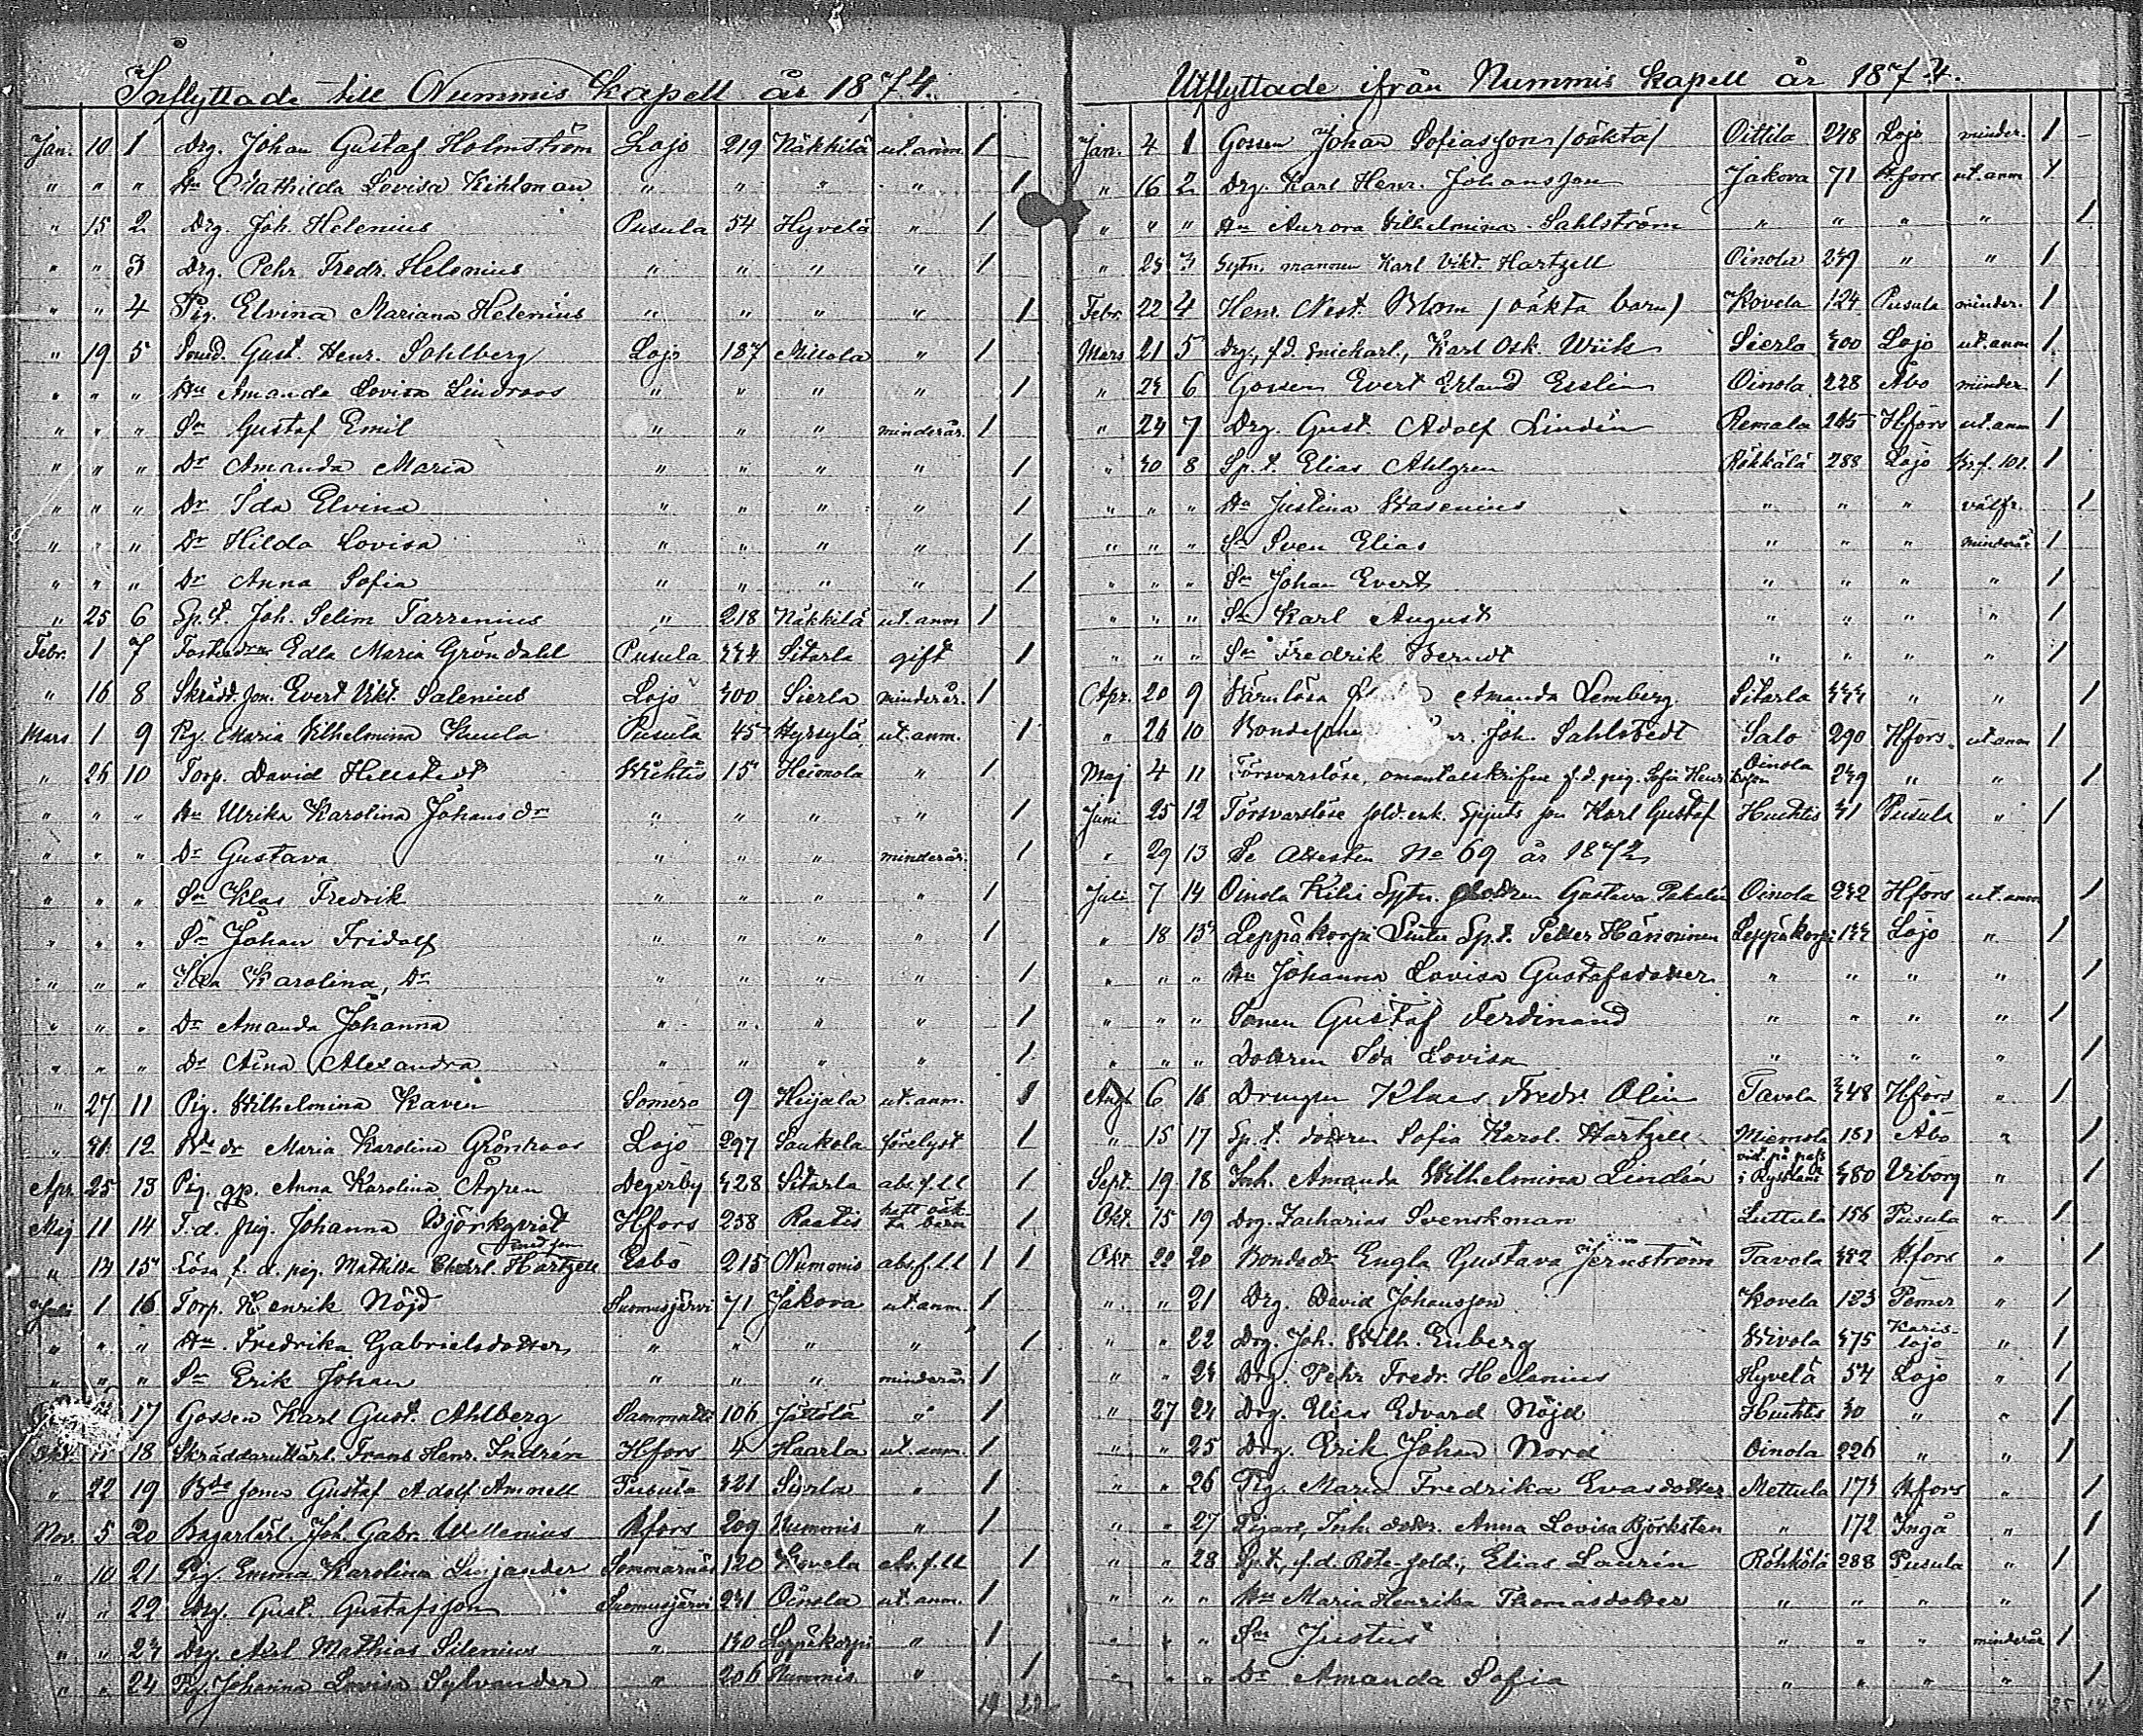 Inflyttade till Nummis Kapell år 1874.
Jan. 10 1 Drg. Johan Gustaf Holmström Lojo 219 Näkkilä ut. anm. 1
" " " Hu Mathilda Lovisa Kihlman " " " " 1
" 15 2 Drg. Joh. Helenius Pusula 54 Hyvelä " 1
" " 3 Drg. Pehr Fredr. Helenius " " " " 1
" " 4 Pig. Elvina Mariana Helenius " " " " 1
" 19 5 Gust. Henr. Sohlberg Lojo 187 Millola " 1
" " " Hu Amanda Lovisa Lindroos " " " " 1
" " " Sn Gustaf Emil " " " minderår. 1
" " " Dr Amanda Maria " " " " 1
" " " Dr Ida Elvina " " " " 1
" " " Dr Hilda Lovisa " " " " 1
" " " Dr Anna Sofia " " " " 1
" 25 6 Sp.t. Joh. Selim Tarrenius " 218 Näkkilä ut. anm 1
Febr. 1 7 Edla Maria Gröndahl Pusula 334 Sitarla gift 1
" 16 8 Skrädd. son. Evert Vikt. Salenius Lojo 300 Sierla minderår. 1
Mars 1 9 Pig. Maria Vilhelmina Pusula 45 Hyrsylä ut. anm. 1
" 26 10 Torp. David Hellstedt Wichtis 15 Heimola " 1
" " " Hu Ulrika Karolina Johansdr " " " " 1
" " " Dr Gustava " " " minderår. 1
" " " Sn Klas Fredrik " " " " 1
" " " Sn Johan Fridolf " " " " 1
" " " Ida Karolina, Dr " " " " 1
" " " Dr Amanda Johanna " " " " 1
" " " Dr Aina Alexandra " " " " 1
" 27 11 Pig. Wilhelmina Kaven Somero 9 Heijala ut. anm. 1
" 31 12 Bde dr Maria Karolina Grönroos Lojo 297 Saukola förelyst 1
Apr. 25 13 Pig. gp. Anna Karolina Ågren Degerby 328 Sitarla abs. f. ll 1
Maj 11 14 F. d. pig. Johanna Björkqvist Hfors 258 Raatis haft oäk-
ta barn 1
med son
" 13 15 Lösa f. d. pig. Mathilda Hartzell Esbo 215 Nummis abs. f. ll 1 1
Juli 1 16 Torp. Henrik Nöjd Suomusjärvi 71 Jakova ut. anm. 1
" " " Hu Fredrika Gabrielsdotter " " " " 1
" " " Sn Erik Johan " " " minderår 1
17 Gossen Karl Gust. Ahlberg Sammatti 106 Jättölä " 1
Okt. 18 Skräddarulärl. Frans Henr. Indrén Hfors 4 Haarla ut. anm. 1
" 22 19 Bde sonen Gustaf Adolf Amnell Pusula 321 Sierla " 1
Nov. 5 20 Bagarlärl. Joh. Gabr. Wellenius Hfors 209 Nummis " 1
" 10 21 Pig. Emma Karolina 120 Kovela abs. f. ll 1
" " 22 Drg. Gust. Gustafsson Suomusjärvi 231 Oinola ut. anm. 1
" " 23 Drg. Axel Mathias Silenius " 130 Leppäkorpi " 1
" " 24 Pig. Johanna Lovisa Sylvander " 206 Nummis " 1
Utflyttade ifrån Nummis Kapell år 1874.
Jan. 4 1 Gossen Johan Sofiasson /oäkta/ Oittila 248 Lojo minder. 1 –
" 16 2 Drg. Karl Henr. Johansson Jakova 71 Hfors ut. anm 1
" " " Hu Aurora Vilhelmina Sahlström " " " " 1
" 23 3 Sytn. mannen Karl Vikt. Hartzell Oinola 239 " " 1
Febr. 22 4 Henr. Nest. Blom /oäkta barn/ Kovela 124 Pusula minder. 1
Mars 21 5 Drg., f.d. snickarl., Karl Osk. Wiik Sierla 300 Lojo ut. anm 1
" 23 6 Gossen Evert Erland Esslin Oinola 228 Åbo minder. 1
" 24 7 Drg. Gust. Adolf Lindén Remala 265 Hfors ut. anm 1
" 30 8 Sp. t. Elias Ahlgren Röhkälä 288 Lojo 1
" " " Hu Justina Wasenius " " " välfr. 1
" " " Sn Sven Elias " " " minderår 1
" " " Sn Johan Evert " " " " 1
" " " Sn Karl August " " " " 1
" " " Sn Fredrik Berndt " " " " 1
Apr. 20 9 Värnlösa Amanda Lemberg Sitarla 333 " " 1
" 26 10 Joh. Sahlstedt Salo 290 Hfors. ut. anm 1
Maj 4 11 Försvarslöse, omantalskrifne f.d. pig. Sofia Oinola 239 " " 1
Juni 25 12 Försvarslöse sold. enk. Spjuts son Karl Gustaf Huchtis 31 Pusula " 1
" 29 13 Se Attesten No 69 år 1872
Juli 7 14 Oinola Kihi Sytn. Gustava Oinola 232 Hfors ut. anm 1
" 18 15 Leppäkorpi Sp. t. Petter Hänninen Leppäkorpi 133 Lojo " 1
" " " Hu Johanna Lovisa Gustafsdotter " " " " 1
" " " Sonen Gustaf Ferdinand " " " " 1
" " " Dottren Ida Lovisa " " " " 1
Aug. 6 16 Drengen Klaes Fredr. Olin Tavola 348 Hfors " 1
" 15 17 Sp. t. dottren Sofia Karol. Hartzell Miemola 181 Åbo " 1
vid. på pass
Sept. 19 18 Inh. Amanda Wilhelmina Lindén i Ryssland 380 Viborg " 1
Okt. 15 19 Drg. Zacharias Svenskman Luttula 156 Pusula " 1
Okt 22 20 Bondedr Engla Gustava Jernström Tavola 352 Hfors " 1
" " 21 Drg. David Johansson Kovela 123 Pemar " 1
" " 22 Drg. Joh. Wilh. Enberg Wivola 375 Karis-
lojo " 1
" " 23 Drg. Pehr Fredr. Helenius Hyvelä 54 Lojo " 1
" 27 24 Drg. Elias Edvard Nöjd Huchtis 30 " " 1
" " 25 Drg. Erik Johan Nord Oinola 226 " " 1
" " 26 Pig. Maria Fredrika Evasdotter Mettula 173 Hfors " 1
" " 27 Pigan, Inh. dottr. Anna Lovisa Björksten " 172 Ingå " 1
" " 28 Sp. t., f.d. Rote-sold., Elias Laurén Röhkölä 288 Pusula " 1
" " " Hu Maria Henrika Thomasdotter " " " " 1
" " " Sn Justus " " " minderår 1
" " " Dr Amanda Sofia " " " " 1